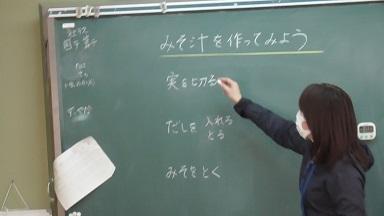 みそ汁を作ってみよう
実を切る
だしを 入れる
とる
みそをとく